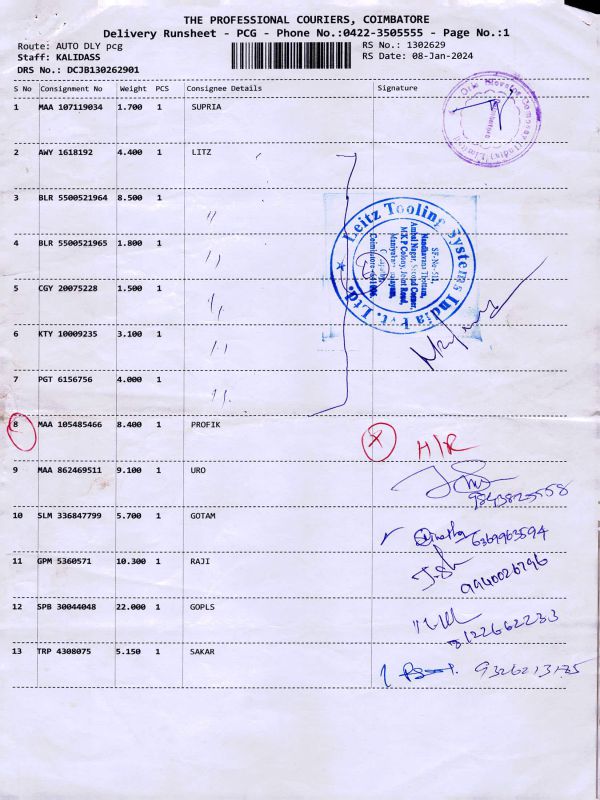 THE PROFESSIONAL COURIERS, COIMBATORE
Delivery Runsheet - PCG - Phone No.:0422-3505555 - Page No.:1
Route: AUTO DLY pcg
RS No.: 1302629
Staff: KALIDASS
RS Date: 08-Jan-2024
DRS No.: DCJB130262901
S No Consignment No Weight PCS Consignee Details Signature
1 MAA 107119034 1.700 1 SUPRIA
2 AWY 1618192 4.400 1 LITZ
3 BLR 5500521964 8.500 1 "
4 BLR 5500521965 1.800 1 "
5 CGY 20075228 1.500 1 "
6 KTY 10009235 3.100 1 "
7 PGT 6156756 4.000 1 "
Leitz Tooling Systems India Pvt. Ltd.
SF-No-511,
Nandhavana Thottam,
Ambal Nagar, Second Corner,
MKP Colony, Joint Road,
Maniyakarampalayam,
Coimbatore-641006.
8 MAA 105485466 8.400 1 PROFIK X H/R
9 MAA 862469511 9.100 1 URO
10 SLM 336847799 5.700 1 GOTAM 6369963594
11 GPM 5360571 10.300 1 RAJI 9940026796
12 SPB 30044048 22.000 1 GOPLS 8122662233
13 TRP 4308075 5.150 1 SAKAR